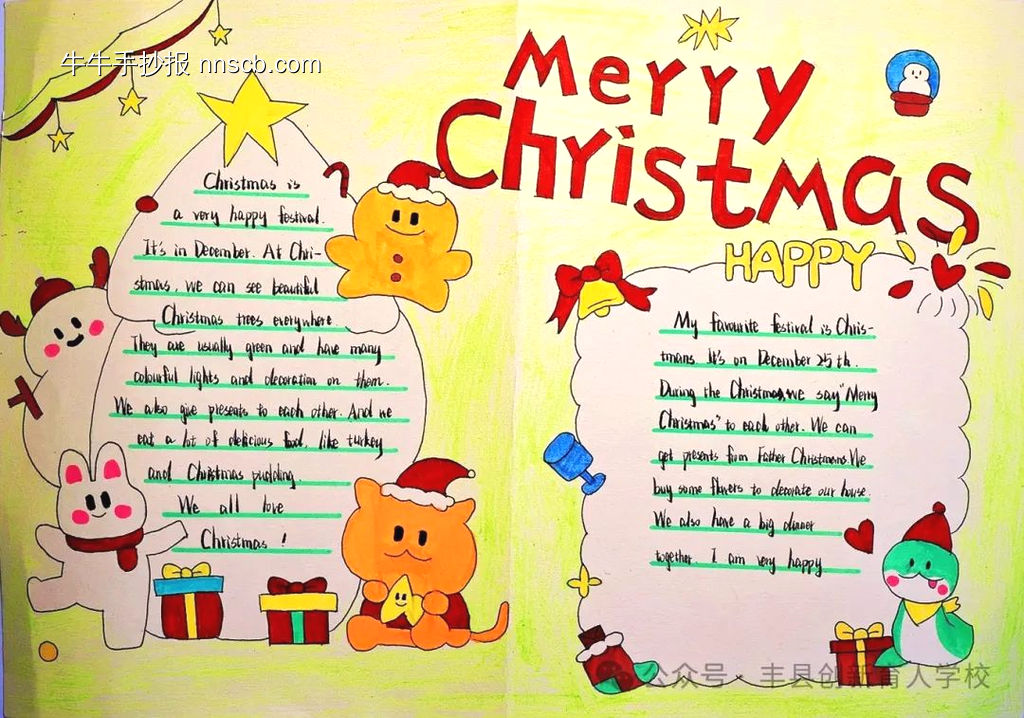 牛牛手抄报 nnscb.com
Merry
Christmas
HAPPY
Christmas is
a very happy festival.
It's in December. At Chri-
stmas, we can see beautiful
Christmas trees everywhere.
They are usually green and have many
colourful lights and decoration on them.
We also give presents to each other. And we
eat a lot of delicious food, like turkey
and Christmas pudding.
We all love
Christmas !
My favourite festival is Chris-
tmans. It's on December 25 th.
During the Christmas, we say "Merry
Christmas" to each other. We can
get presents from Father Christmans. We
buy some flowers to decorate our house.
We also have a big dinner
together. I am very happy
公众号 · 丰县创新育人学校